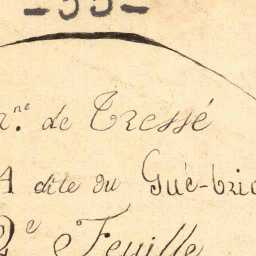 -55-
rne. de Tressé
A dite du Gué-bri
2e Feuille